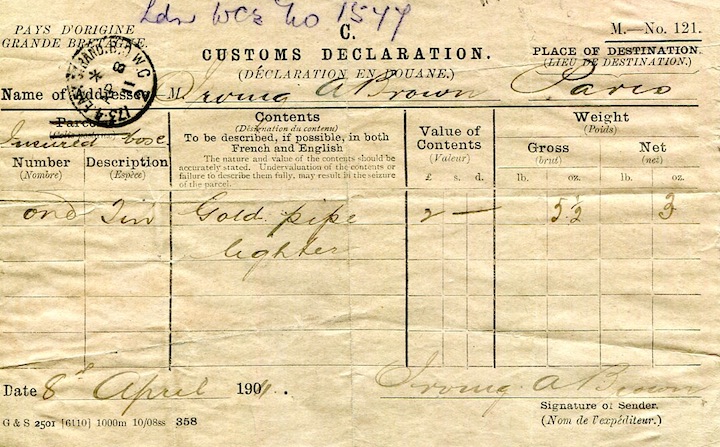 Ldn WCS No 1577
PAYS D'ORIGINE
GRANDE BRETAGNE.
C.
M.—No. 121.
CUSTOMS DECLARATION.
(DÉCLARATION EN DOUANE.)
PLACE OF DESTINATION.
(LIEU DE DESTINATION.)
Name of Addressee, M. Irving A Brown Paris
Parcels
(Colis postaux)
Insured box
Number
(Nombre)
Description
(Espèce)
Contents
(Désignation du contenu)
To be described, if possible, in both
French and English
The nature and value of the contents should be
accurately stated. Undervaluation of the contents or
failure to describe them fully, may result in the seizure
of the parcel.
Value of
Contents
(Valeur)
£ s. d.
Weight
(Poids)
Gross
(brut)
Net
(net)
lb. oz. lb. oz.
one Tin Gold pipe 2 — 5½ 3
lighter
Date 8th April 190
Irving A Brown
Signature of Sender.
(Nom de l'expéditeur.)
G & S 2501 [6110] 1000m 10/08ss 358